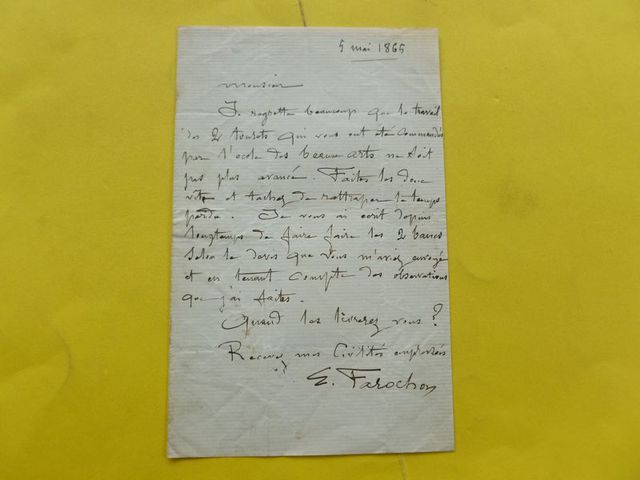 5 mai 1865
Monsieur
Je regrette beaucoup que le travail
des 2 tourets qui vous ont été commandés
par l'école des beaux arts ne soit
pas plus avancé. Faites les donc
vite et tachez de rattraper le temps
perdu. Je vous ai écrit depuis
longtemps de faire faire les 2 bancs
selon le devis que vous m'aviez envoyé
et en tenant compte des observations
que j'ai faites.
Quand les livrerez vous ?
Recevez mes civilités empressées
E. Farochon